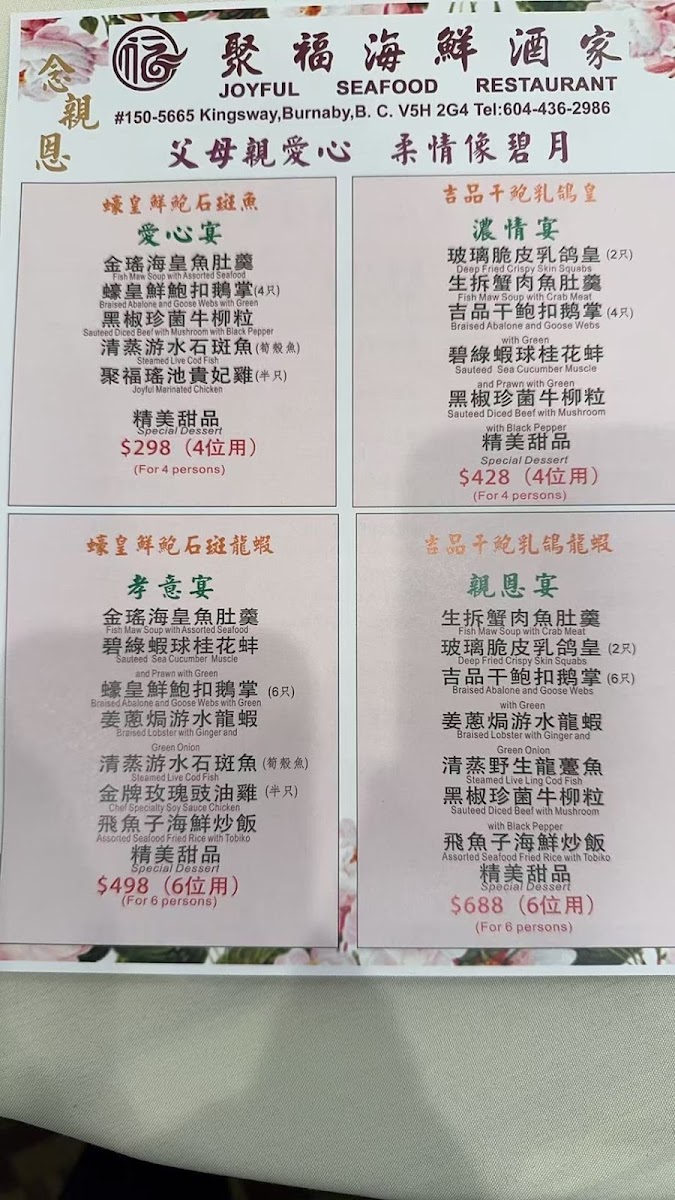 念親恩
福
聚福海鮮酒家
JOYFUL SEAFOOD RESTAURANT
#150-5665 Kingsway,Burnaby,B. C. V5H 2G4 Tel:604-436-2986
父母親愛心 柔情像碧月
蠔皇鮮鮑石斑魚
愛心宴
金瑤海皇魚肚羹
Fish Maw Soup with Assorted Seafood
蠔皇鮮鮑扣鵝掌(4只)
Braised Abalone and Goose Webs with Green
黑椒珍菌牛柳粒
Sauteed Diced Beef with Mushroom with Black Pepper
清蒸游水石斑魚(筍殼魚)
Steamed Live Cod Fish
聚福瑤池貴妃雞(半只)
Joyful Marinated Chicken
精美甜品
Special Dessert
$298（4位用）
(For 4 persons)
吉品干鮑乳鴿皇
濃情宴
玻璃脆皮乳鸽皇(2只)
Deep Fried Crispy Skin Squabs
生拆蟹肉魚肚羹
Fish Maw Soup with Crab Meat
吉品干鮑扣鹅掌(4只)
Braised Abalone and Goose Webs
with Green
碧綠蝦球桂花蚌
Sauteed Sea Cucumber Muscle
and Prawn with Green
黑椒珍菌牛柳粒
Sauteed Diced Beef with Mushroom
with Black Pepper
精美甜品
Special Dessert
$428（4位用）
(For 4 persons)
蠔皇鮮鮑石斑龍蝦
孝意宴
金瑤海皇魚肚羹
Fish Maw Soup with Assorted Seafood
碧綠蝦球桂花蚌
Sauteed Sea Cucumber Muscle
and Prawn with Green
蠔皇鮮鮑扣鵝掌(6只)
Braised Abalone and Goose Webs with Green
姜蔥焗游水龍蝦
Braised Lobster with Ginger and
Green Onion
清蒸游水石斑魚(筍殼魚)
Steamed Live Cod Fish
金牌玫瑰豉油雞(半只)
Chef Specialty Soy Sauce Chicken
飛魚子海鮮炒飯
Assorted Seafood Fried Rice with Tobiko
精美甜品
Special Dessert
$498（6位用）
(For 6 persons)
吉品干鮑乳鴿龍蝦
親恩宴
生拆蟹肉魚肚羹
Fish Maw Soup with Crab Meat
玻璃脆皮乳鸽皇(2只)
Deep Fried Crispy Skin Squabs
吉品干鮑扣鹅掌(6只)
Braised Abalone and Goose Webs
with Green
姜蔥焗游水龍蝦
Braised Lobster with Ginger and
Green Onion
清蒸野生龍躉魚
Steamed Live Ling Cod Fish
黑椒珍菌牛柳粒
Sauteed Diced Beef with Mushroom
with Black Pepper
飛魚子海鮮炒飯
Assorted Seafood Fried Rice with Tobiko
精美甜品
Special Dessert
$688（6位用）
(For 6 persons)